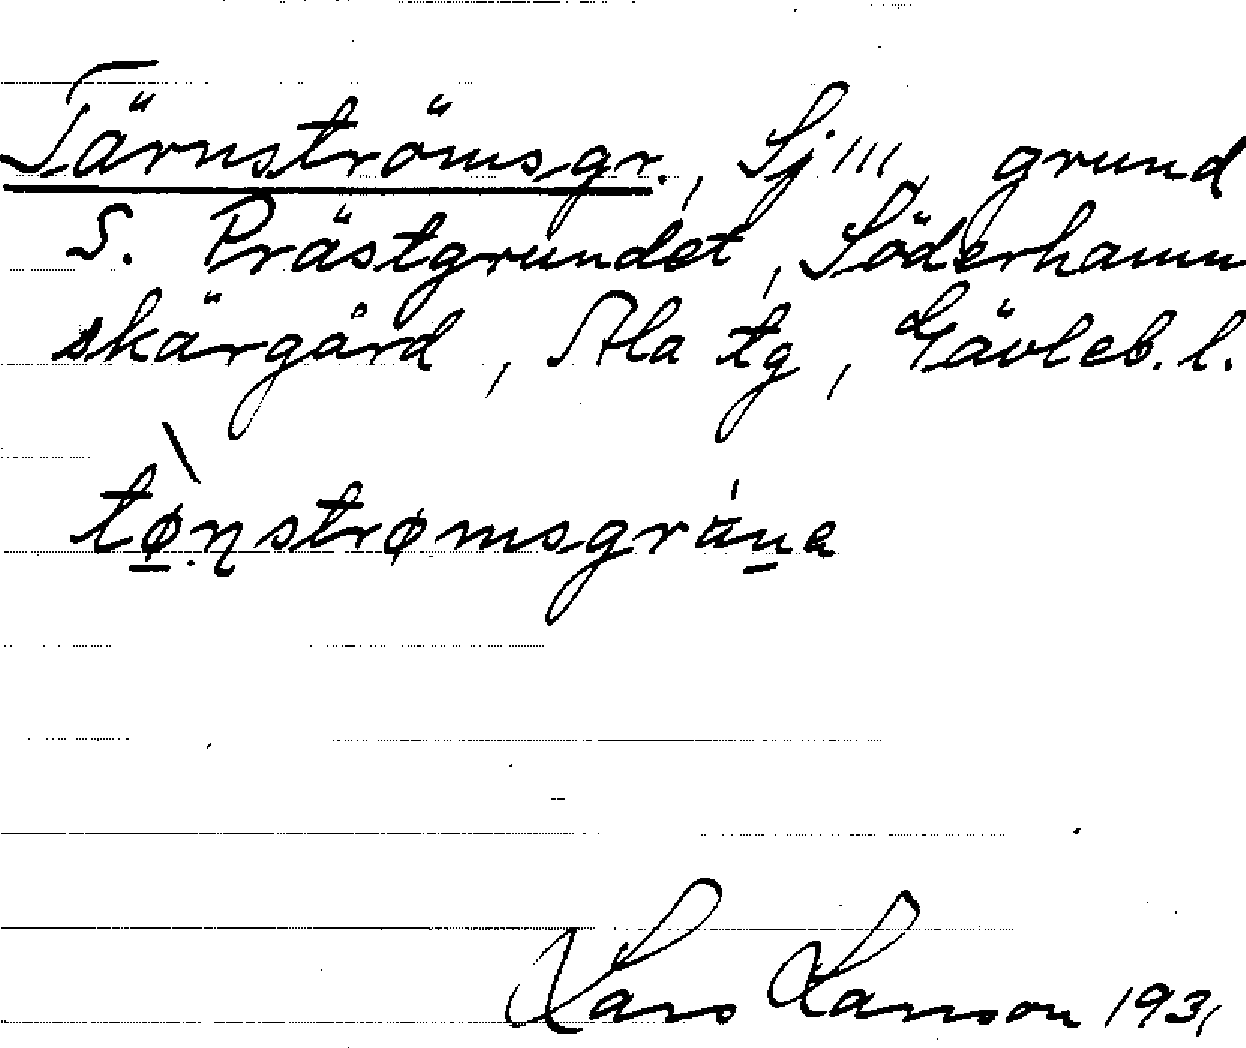 Tärnströmsgr., Sj 111, grund
S. Prästgrundet, Söderhamn
skärgård, Ala tg, Gävleb. l.
tø̀ṇstrømsgrä́na
Lars Larsson 1931